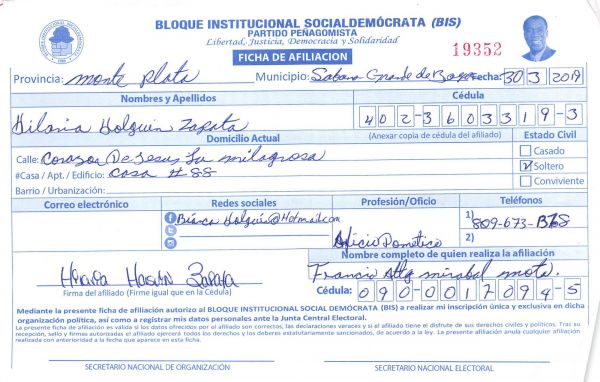 BLOQUE INSTITUCIONAL SOCIALDEMÓCRATA (BIS)
PARTIDO PEÑAGOMISTA
Libertad, Justicia, Democracia y Solidaridad
FICHA DE AFILIACION
19352
Provincia: Monte Plata Municipio: Sabana Grande de Boya Fecha: 30 3 2019
Nombres y Apellidos Cédula
Hilaria Holguin Zapata 402-3603319-3
Domicilio Actual (Anexar copia de cédula del afiliado) Estado Civil
Calle: Corazon De Jesus La milagrosa
#Casa / Apt. / Edificio: Casa # 88
Barrio / Urbanización:
Casado
Soltero
Conviviente
Correo electrónico Redes sociales Profesión/Oficio Teléfonos
Bianca Holguin@Hotmail.com
Oficio Domestico
1) 809-673-
2)
Nombre completo de quien realiza la afiliación
Francis mirabal mota.
Hilaria Holguin Zapata
Firma del afiliado (Firme igual que en la Cédula)
Cédula: 090-0017094-5
Mediante la presente ficha de afiliación autorizo al BLOQUE INSTITUCIONAL SOCIAL DEMÓCRATA (BIS) a realizar mi inscripción única y exclusiva en dicha
organización política, así como a registrar mis datos personales ante la Junta Central Electoral.
La presente ficha de afiliación es valida si los datos ofrecidos por el afiliado son correctos, las declaraciones veraces y si al afiliado tiene el disfrute de sus derechos civiles y políticos. Tras su
recepción, sello y firmas autorizadas el afiliado ejercerá todos los derechos y los deberes estatutariamente sancionados, de acuerdo a la ley. La presente afiliación anula cualquier afiliación
realizada con anterioridad a la fecha que aparece en esta ficha.
SECRETARIO NACIONAL DE ORGANIZACIÓN
SECRETARIO NACIONAL ELECTORAL